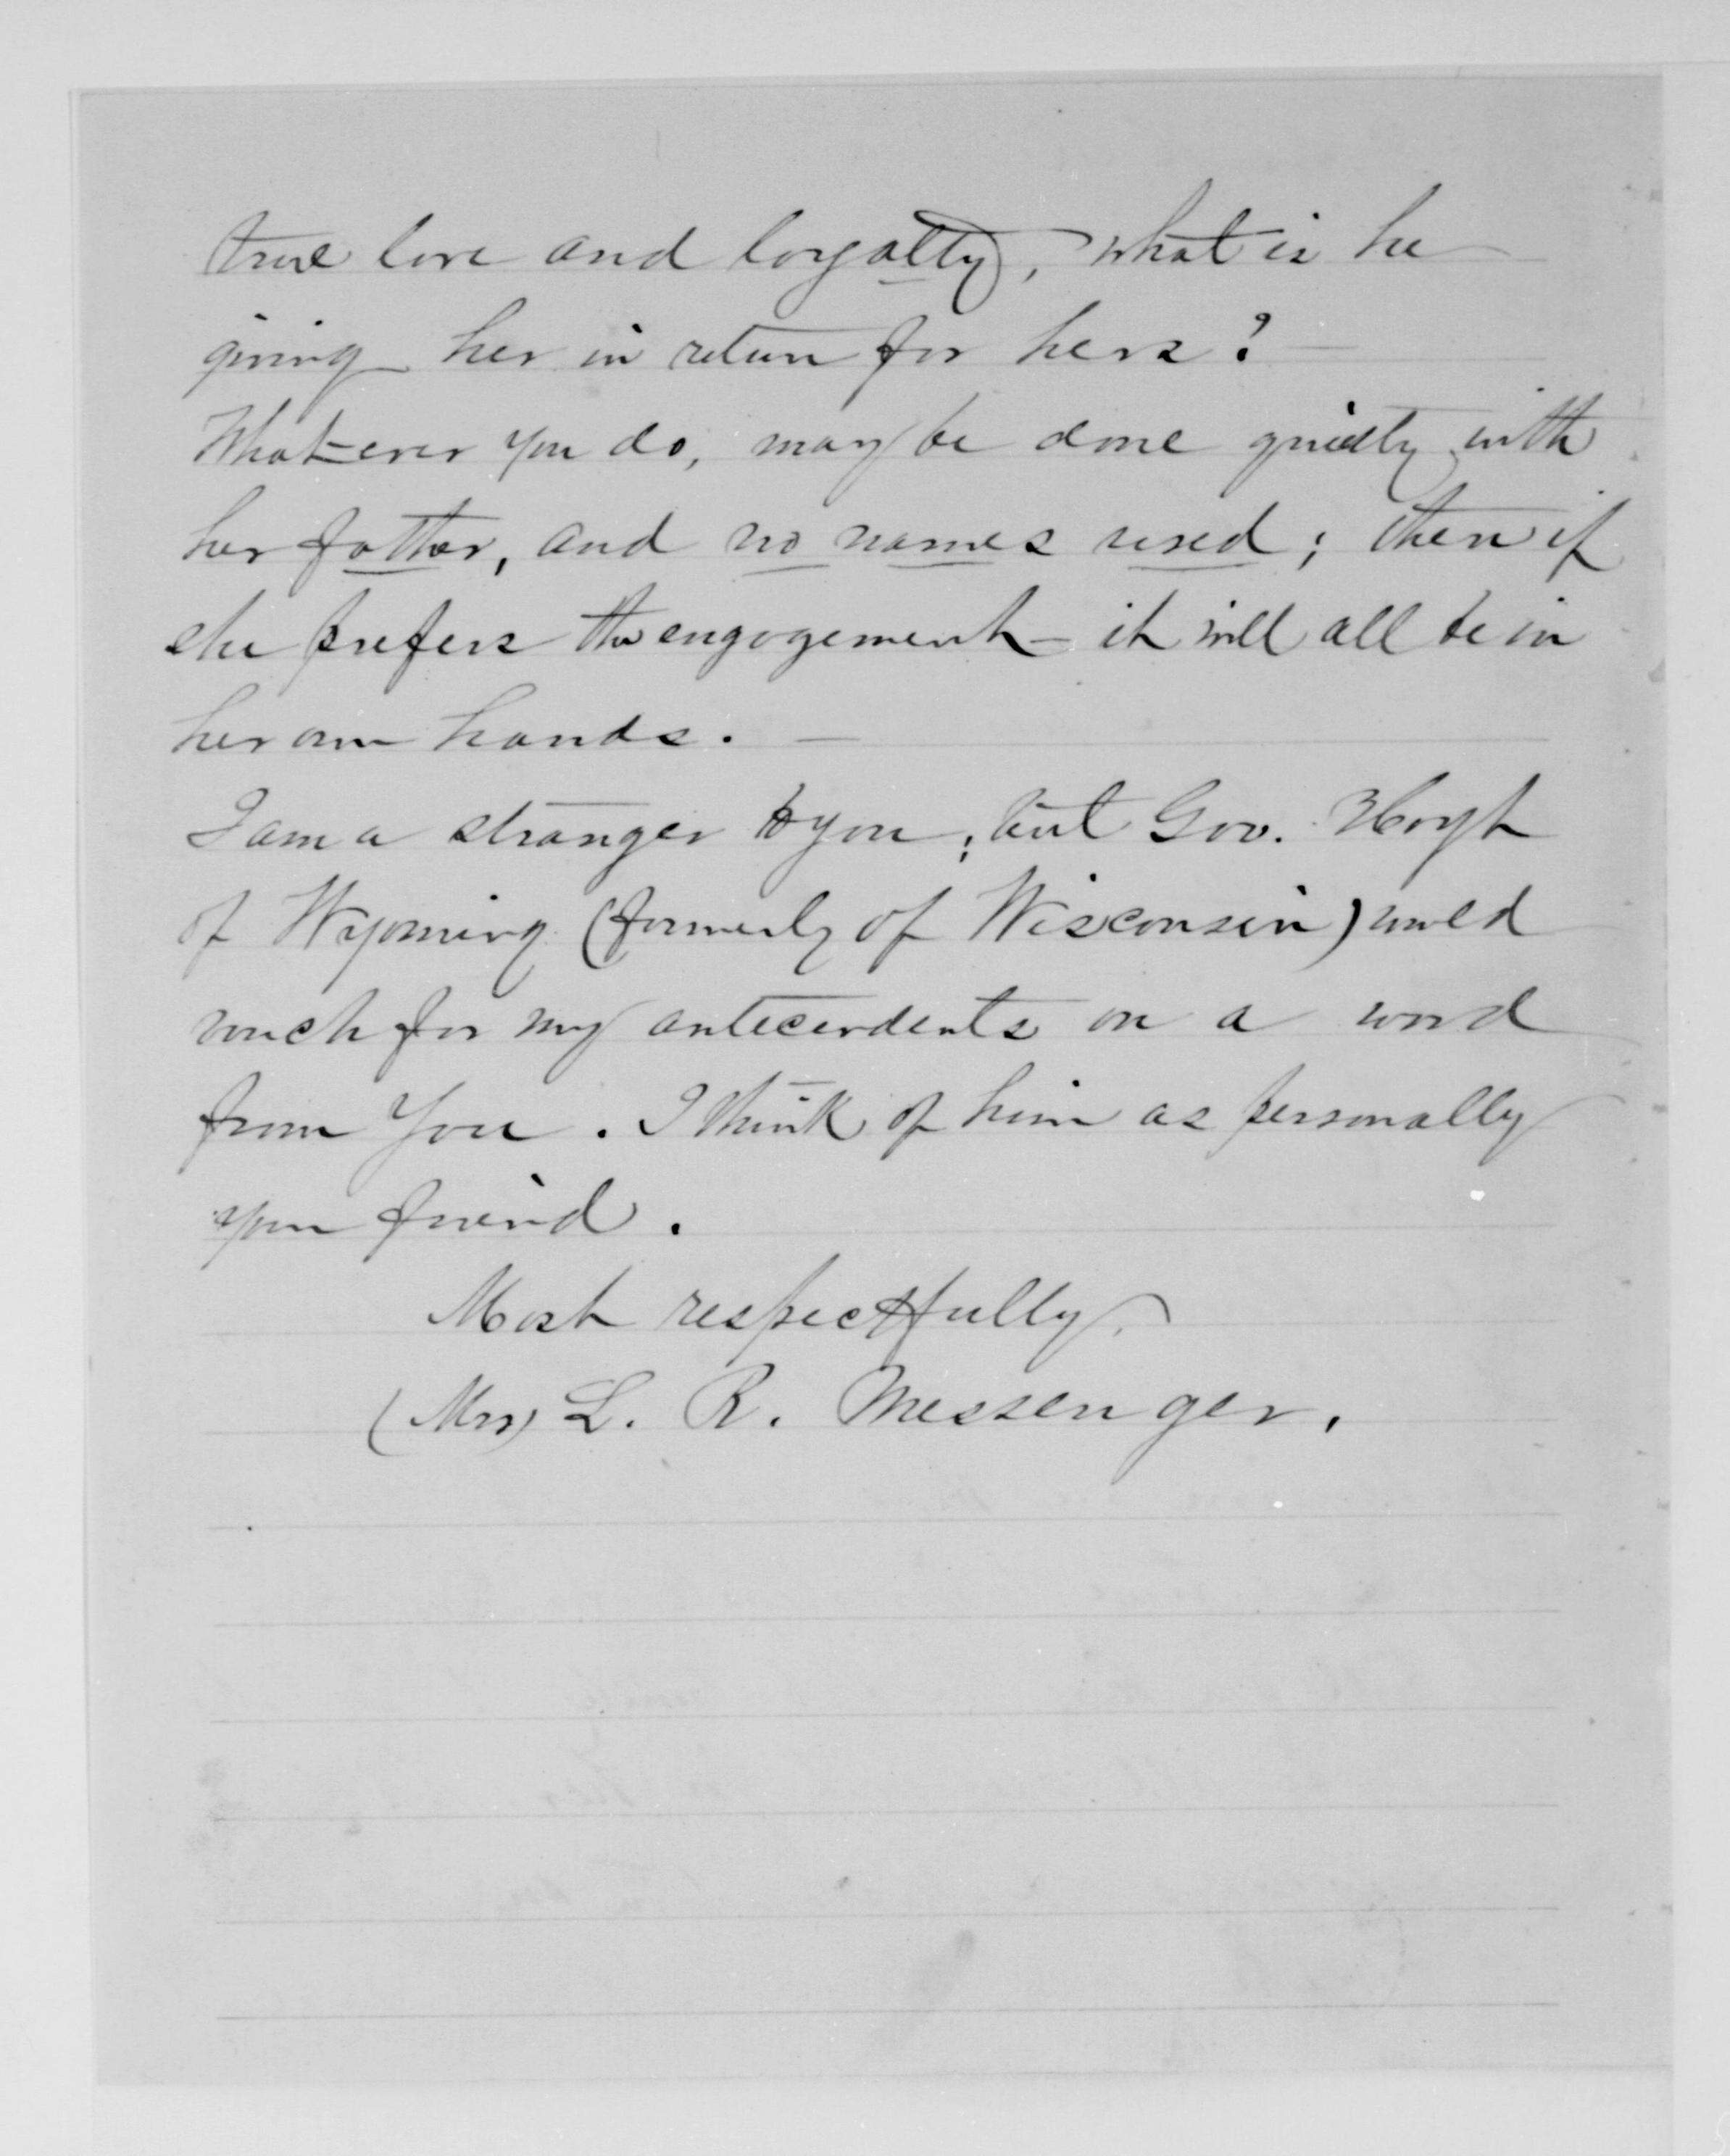 true love and loyalty, what is he
giving her in return for hers? —
What-ever you do, may be done quietly with
her father, and no names used; then if
she prefers the engagement – it will all be in
her own hands. —
I am a stranger to you; but Gov. Hoyt
of Wyoming (formerly of Wisconsin) would
vouch for my antecerdents on a word
from You. I think of him as personally
your friend.
Most respectfully,
(Mrs) L. R. Messenger.